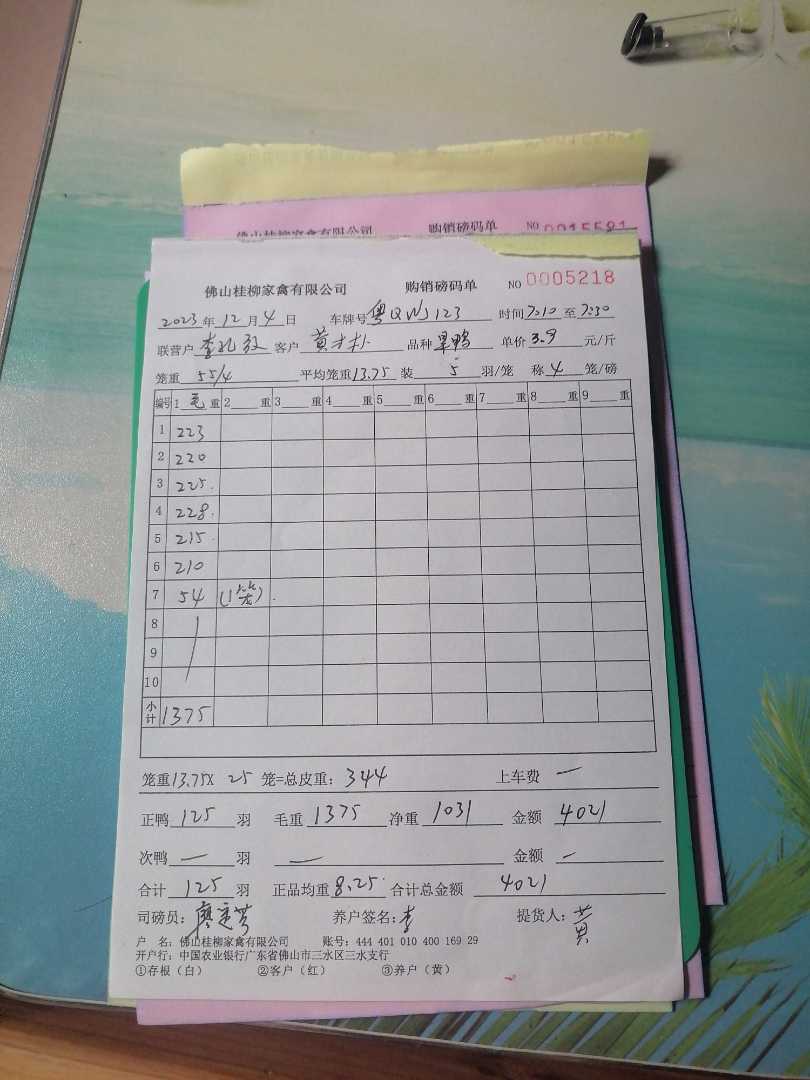 佛山桂柳家禽有限公司 购销磅码单 NO 0015581
佛山桂柳家禽有限公司 购销磅码单 NO 0005218
2023年12月4日 车牌号 粤Q 123 时间7:10至7:30
联营户 李 客户 黄 品种 鸭 单价 3.9 元/斤
笼重 55/4 平均笼重13.75 装 5 羽/笼 称 4 笼/磅
编号 1 毛 重 2 重 3 重 4 重 5 重 6 重 7 重 8 重 9 重
1 223
2 220
3 225.
4 228.
5 215.
6 210
7 54 (1笼).
8
9
10
小计 1375
笼重13.75X 25 笼=总皮重: 344 上车费 一
正鸭 125 羽 毛重 1375 净重 1031 金额 4021
次鸭 一 羽 一 金额 一
合计 125 羽 正品均重 8.25 合计总金额 4021
司磅员: 廖 芳 养户签名: 李 提货人: 黄
户 名: 佛山桂柳家禽有限公司 账号: 444 401 010 400 169 29
开户行: 中国农业银行广东省佛山市三水区三水支行
①存根（白） ②客户（红） ③养户（黄）